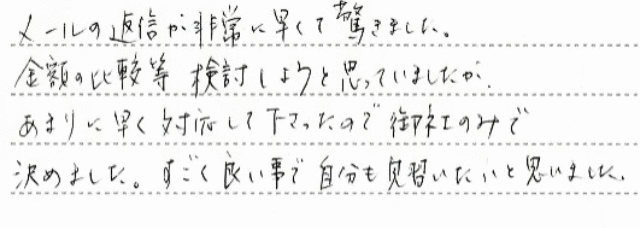 メールの返信が非常に早くて驚きました。
金額の比較等 検討しようと思っていましたが、
あまりに早く対応して下さったので御社のみで
決めました。すごく良い事で自分も見習いたいと思いました。